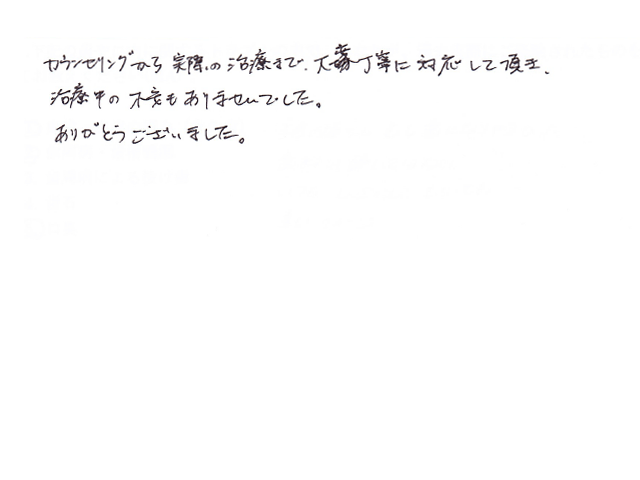 カウンセリングから実際の治療まで、大変丁寧に対応して頂き、
治療中の不安もありませんでした。
ありがとうございました。